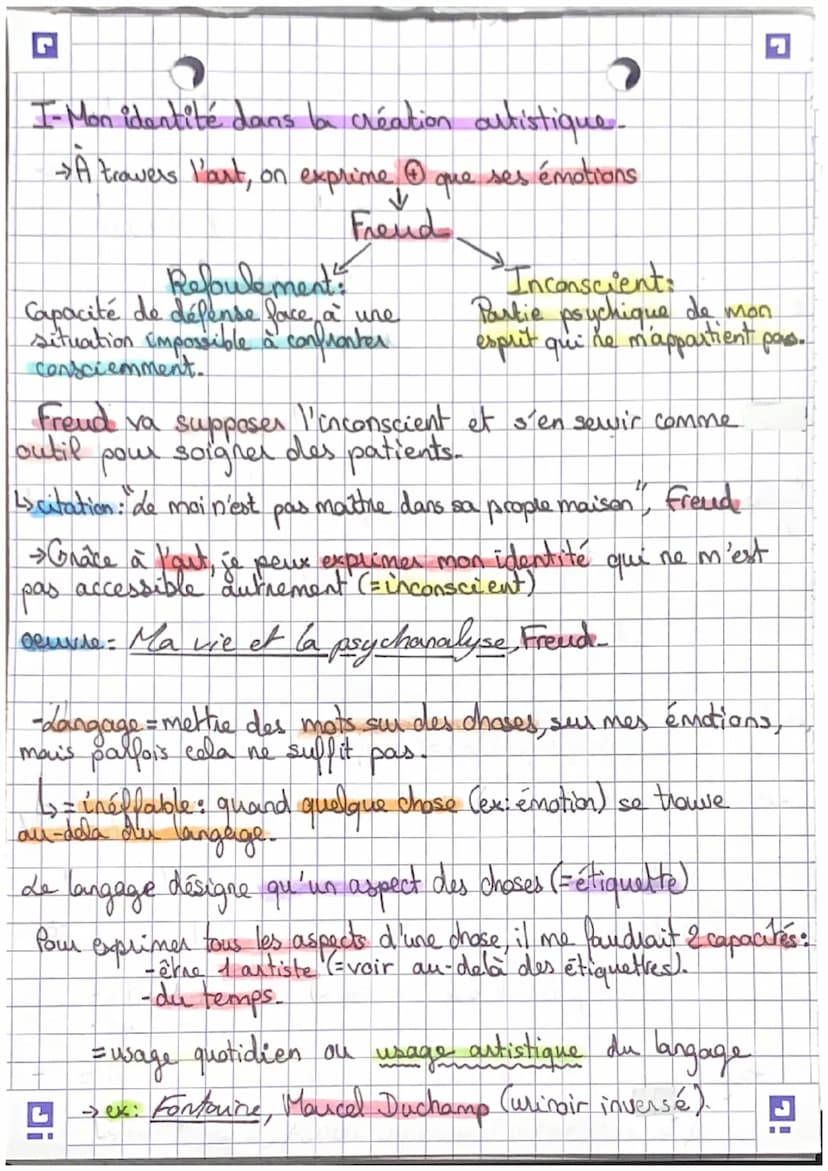 I-Mon identité dans la création artistique.
→À travers l'art, on exprime ⊕ que ses émotions
↓
Freud
Refoulement:
Capacité de défense face à une
situation impossible à confronter
consciemment.
Inconscient:
Partie psychique de mon
esprit qui ne m'appartient pas.
Freud va supposer l'inconscient et s'en servir comme
outil pour soigner des patients.
↳citation: "Le moi n'est pas maître dans sa propre maison", Freud
→Grâce à l'art, je peux exprimer mon identité qui ne m'est
pas accessible autrement (=inconscient)
oeuvre= Ma vie et la psychanalyse, Freud.
-Langage=mettre des mots sur des choses, sur mes émotions,
mais parfois cela ne suffit pas.
↳=inéffable: quand quelque chose (ex: émotion) se trouve
au-dela du langage.
Le langage désigne qu'un aspect des choses (=étiquette)
Pour exprimer tous les aspects d'une chose, il me faudrait 2 capacités:
-être 1 artiste (=voir au-delà des étiquettes).
-du temps.
=usage quotidien ou usage artistique du langage
→ex: Fontaine, Marcel Duchamp (urinoir inversé).